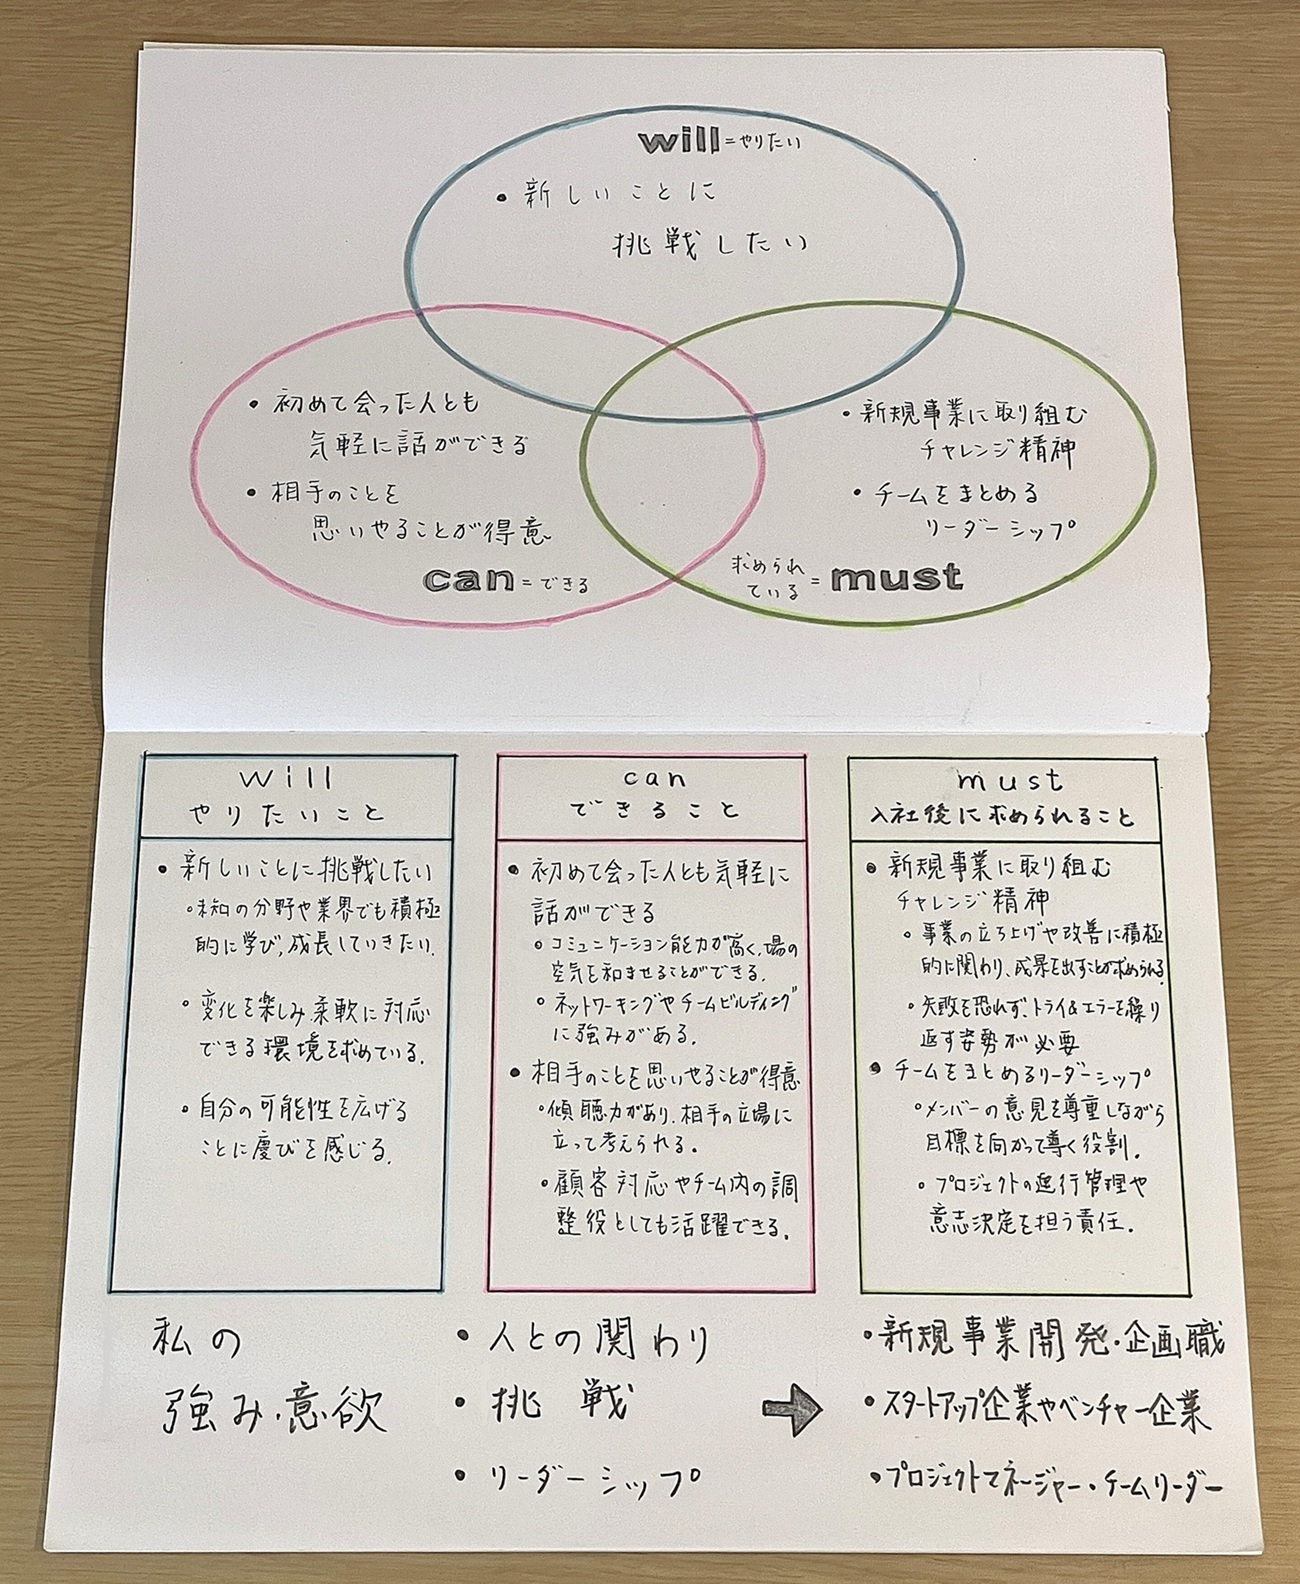 will=やりたい
• 新しいことに
挑戦したい
• 初めて会った人とも
気軽に話ができる
• 相手のことを
思いやることが得意
can=できる
• 新規事業に取り組む
チャレンジ精神
• チームをまとめる
リーダーシップ
求められ
ている=must
will
やりたいこと
• 新しいことに挑戦したい
◦未知の分野や業界でも積極
的に学び,成長していきたい.
◦変化を楽しみ柔軟に対応
できる環境を求めている.
◦自分の可能性を広げる
ことに慶びを感じる.
can
できること
• 初めて会った人とも気軽に
話ができる
◦コミュニケーション能力が高く,場の
空気を和ませることができる.
◦ネットワーキングやチームビルディング
に強みがある.
• 相手のことを思いやることが得意
◦傾聴力があり,相手の立場に
立って考えられる.
◦顧客対応やチーム内の調
整役としても活躍できる.
must
入社後に求められること
• 新規事業に取り組む
チャレンジ精神
◦事業の立ち上げや改善に積極
的に関わり、成果を出すことが求められる
◦失敗を恐れず、トライ&エラーを繰り
返す姿勢が必要
• チームをまとめるリーダーシップ
◦メンバーの意見を尊重しながら
目標を向かって導く役割.
◦プロジェクトの進行管理や
意志決定を担う責任.
私の
強み・意欲
• 人との関わり
• 挑戦
• リーダーシップ
➡
•新規事業開発・企画職
•スタートアップ企業やベンチャー企業
•プロジェクトマネージャー・チームリーダー